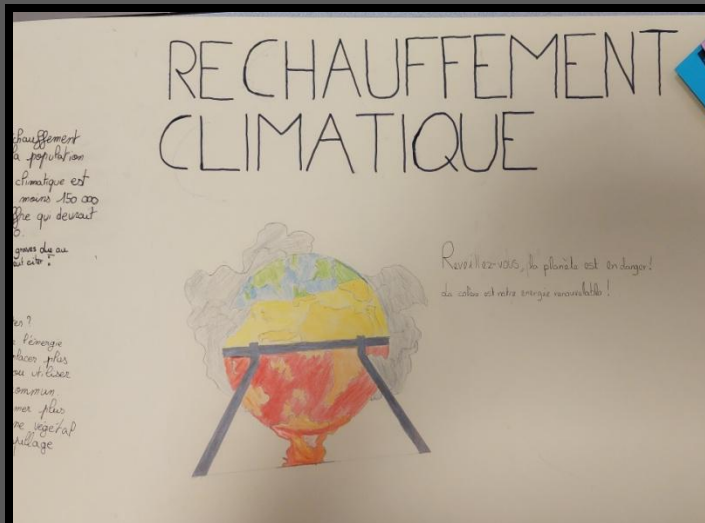 RECHAUFFEMENT
CLIMATIQUE
chauffement
a population
climatique est
moins 150 000
ffre qui devrait
graves due au
l'énergie
places plus
ou utiliser
ommun
mer plus
végétal
pillage
Reveillez-vous, la planète est en danger!
La colère est notre énergie renouvelable!